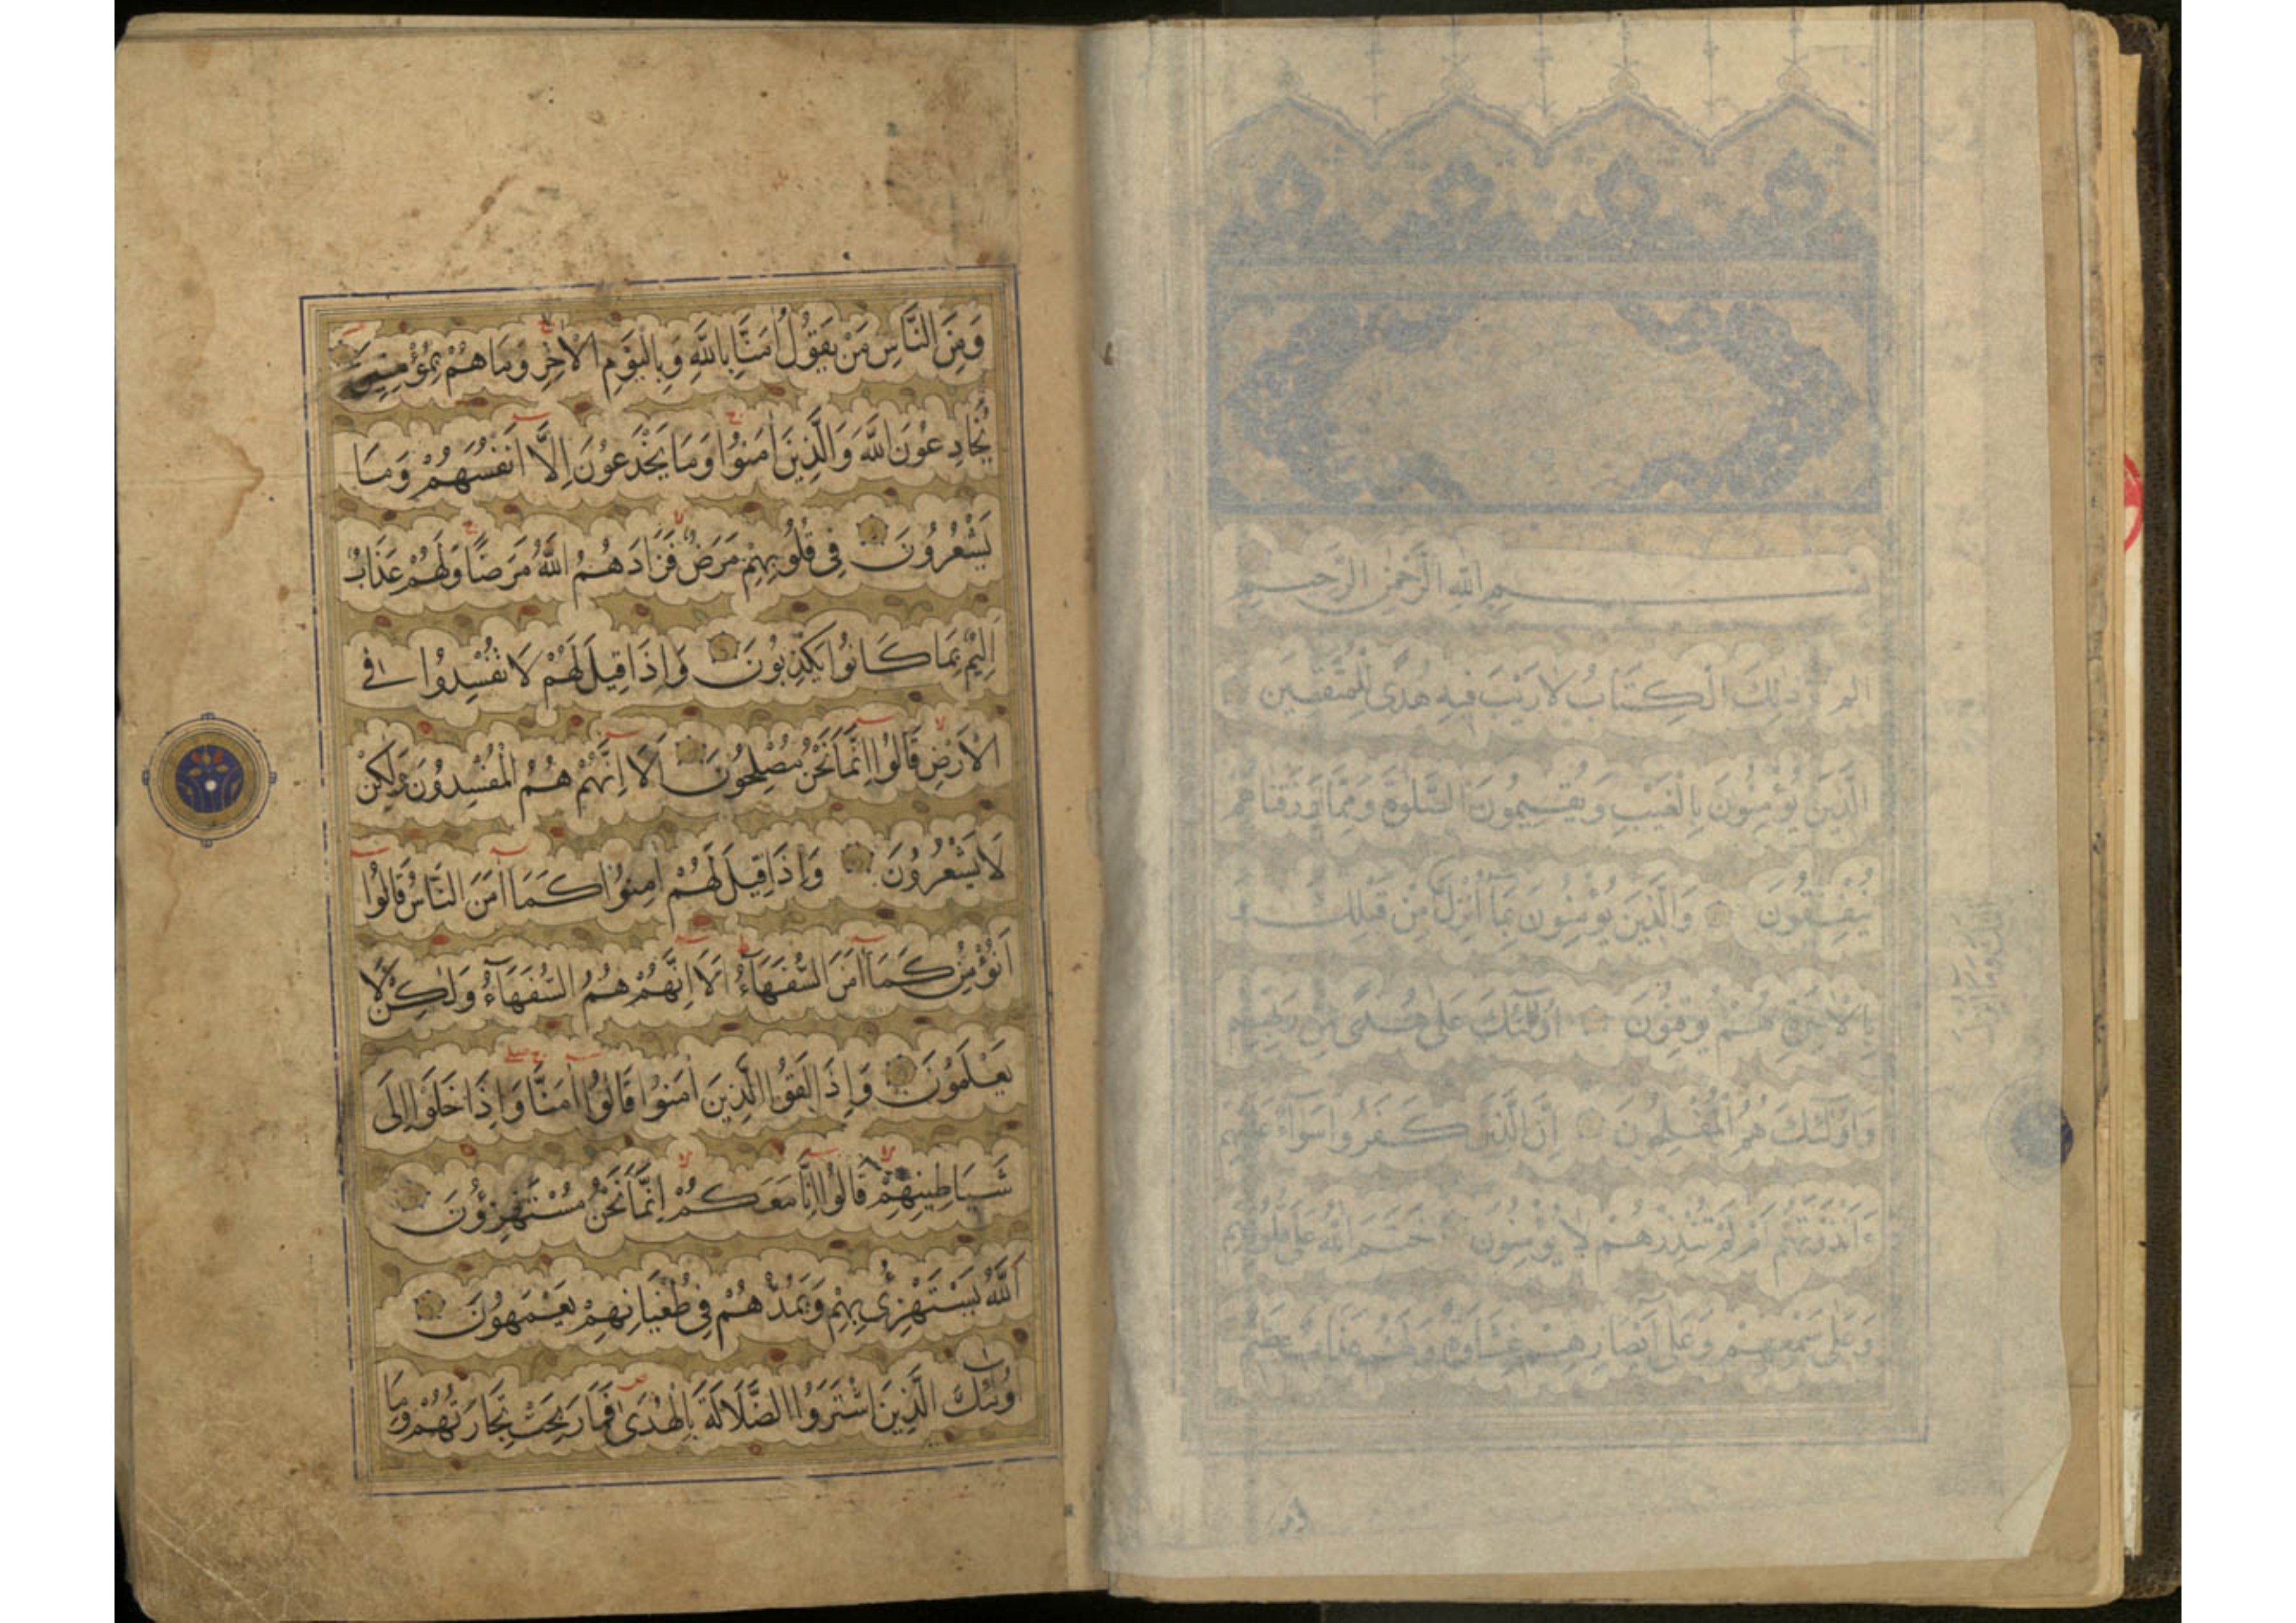 بِسْمِ اللَّهِ الرَّحْمٰنِ الرَّحِيمِ
الم ذٰلِكَ الْكِتَابُ لَا رَيْبَ فِيهِ هُدًى لِلْمُتَّقِينَ
الَّذِينَ يُؤْمِنُونَ بِالْغَيْبِ وَيُقِيمُونَ الصَّلٰوةَ وَمِمَّا رَزَقْنَاهُمْ
يُنْفِقُونَ وَالَّذِينَ يُؤْمِنُونَ بِمَا أُنْزِلَ مِنْ قَبْلِكَ وَ
بِالْاٰخِرَةِ هُمْ يُوقِنُونَ اُولٰئِكَ عَلٰى هُدًى مِنْ رَبِّهِمْ
وَاُولٰئِكَ هُمُ الْمُفْلِحُونَ اِنَّ الَّذِينَ كَفَرُوا سَوَاءٌ عَلَيْهِمْ
ءَاَنْذَرْتَهُمْ اَمْ لَمْ تُنْذِرْهُمْ لَا يُؤْمِنُونَ خَتَمَ اللَّهُ عَلٰى قُلُوبِهِمْ
وَعَلٰى سَمْعِهِمْ وَعَلٰى اَبْصَارِهِمْ غِشَاوَةٌ وَلَهُمْ عَذَابٌ عَظِيمٌ
اِلَيْكَ وَمَا اُنْزِلَ
وَمِنَ النَّاسِ مَنْ يَقُولُ اٰمَنَّا بِاللَّهِ وَبِالْيَوْمِ الْاٰخِرِ وَمَا هُمْ بِمُؤْمِنِينَ
يُخَادِعُونَ اللَّهَ وَالَّذِينَ اٰمَنُوا وَمَا يَخْدَعُونَ اِلَّا اَنْفُسَهُمْ وَمَا
يَشْعُرُونَ فِي قُلُوبِهِمْ مَرَضٌ فَزَادَهُمُ اللَّهُ مَرَضًا وَلَهُمْ عَذَابٌ
اَلِيمٌ بِمَا كَانُوا يَكْذِبُونَ وَاِذَا قِيلَ لَهُمْ لَا تُفْسِدُوا فِي
الْاَرْضِ قَالُوا اِنَّمَا نَحْنُ مُصْلِحُونَ اَلَا اِنَّهُمْ هُمُ الْمُفْسِدُونَ وَلٰكِنْ
لَا يَشْعُرُونَ وَاِذَا قِيلَ لَهُمْ اٰمِنُوا كَمَا اٰمَنَ النَّاسُ قَالُوا
اَنُؤْمِنُ كَمَا اٰمَنَ السُّفَهَاءُ اَلَا اِنَّهُمْ هُمُ السُّفَهَاءُ وَلٰكِنْ لَا
يَعْلَمُونَ وَاِذَا لَقُوا الَّذِينَ اٰمَنُوا قَالُوا اٰمَنَّا وَاِذَا خَلَوْا اِلَى
شَيَاطِينِهِمْ قَالُوا اِنَّا مَعَكُمْ اِنَّمَا نَحْنُ مُسْتَهْزِؤُنَ
اَللَّهُ يَسْتَهْزِئُ بِهِمْ وَيَمُدُّهُمْ فِي طُغْيَانِهِمْ يَعْمَهُونَ
اُولٰئِكَ الَّذِينَ اشْتَرَوُا الضَّلَالَةَ بِالْهُدٰى فَمَا رَبِحَتْ تِجَارَتُهُمْ وَمَا